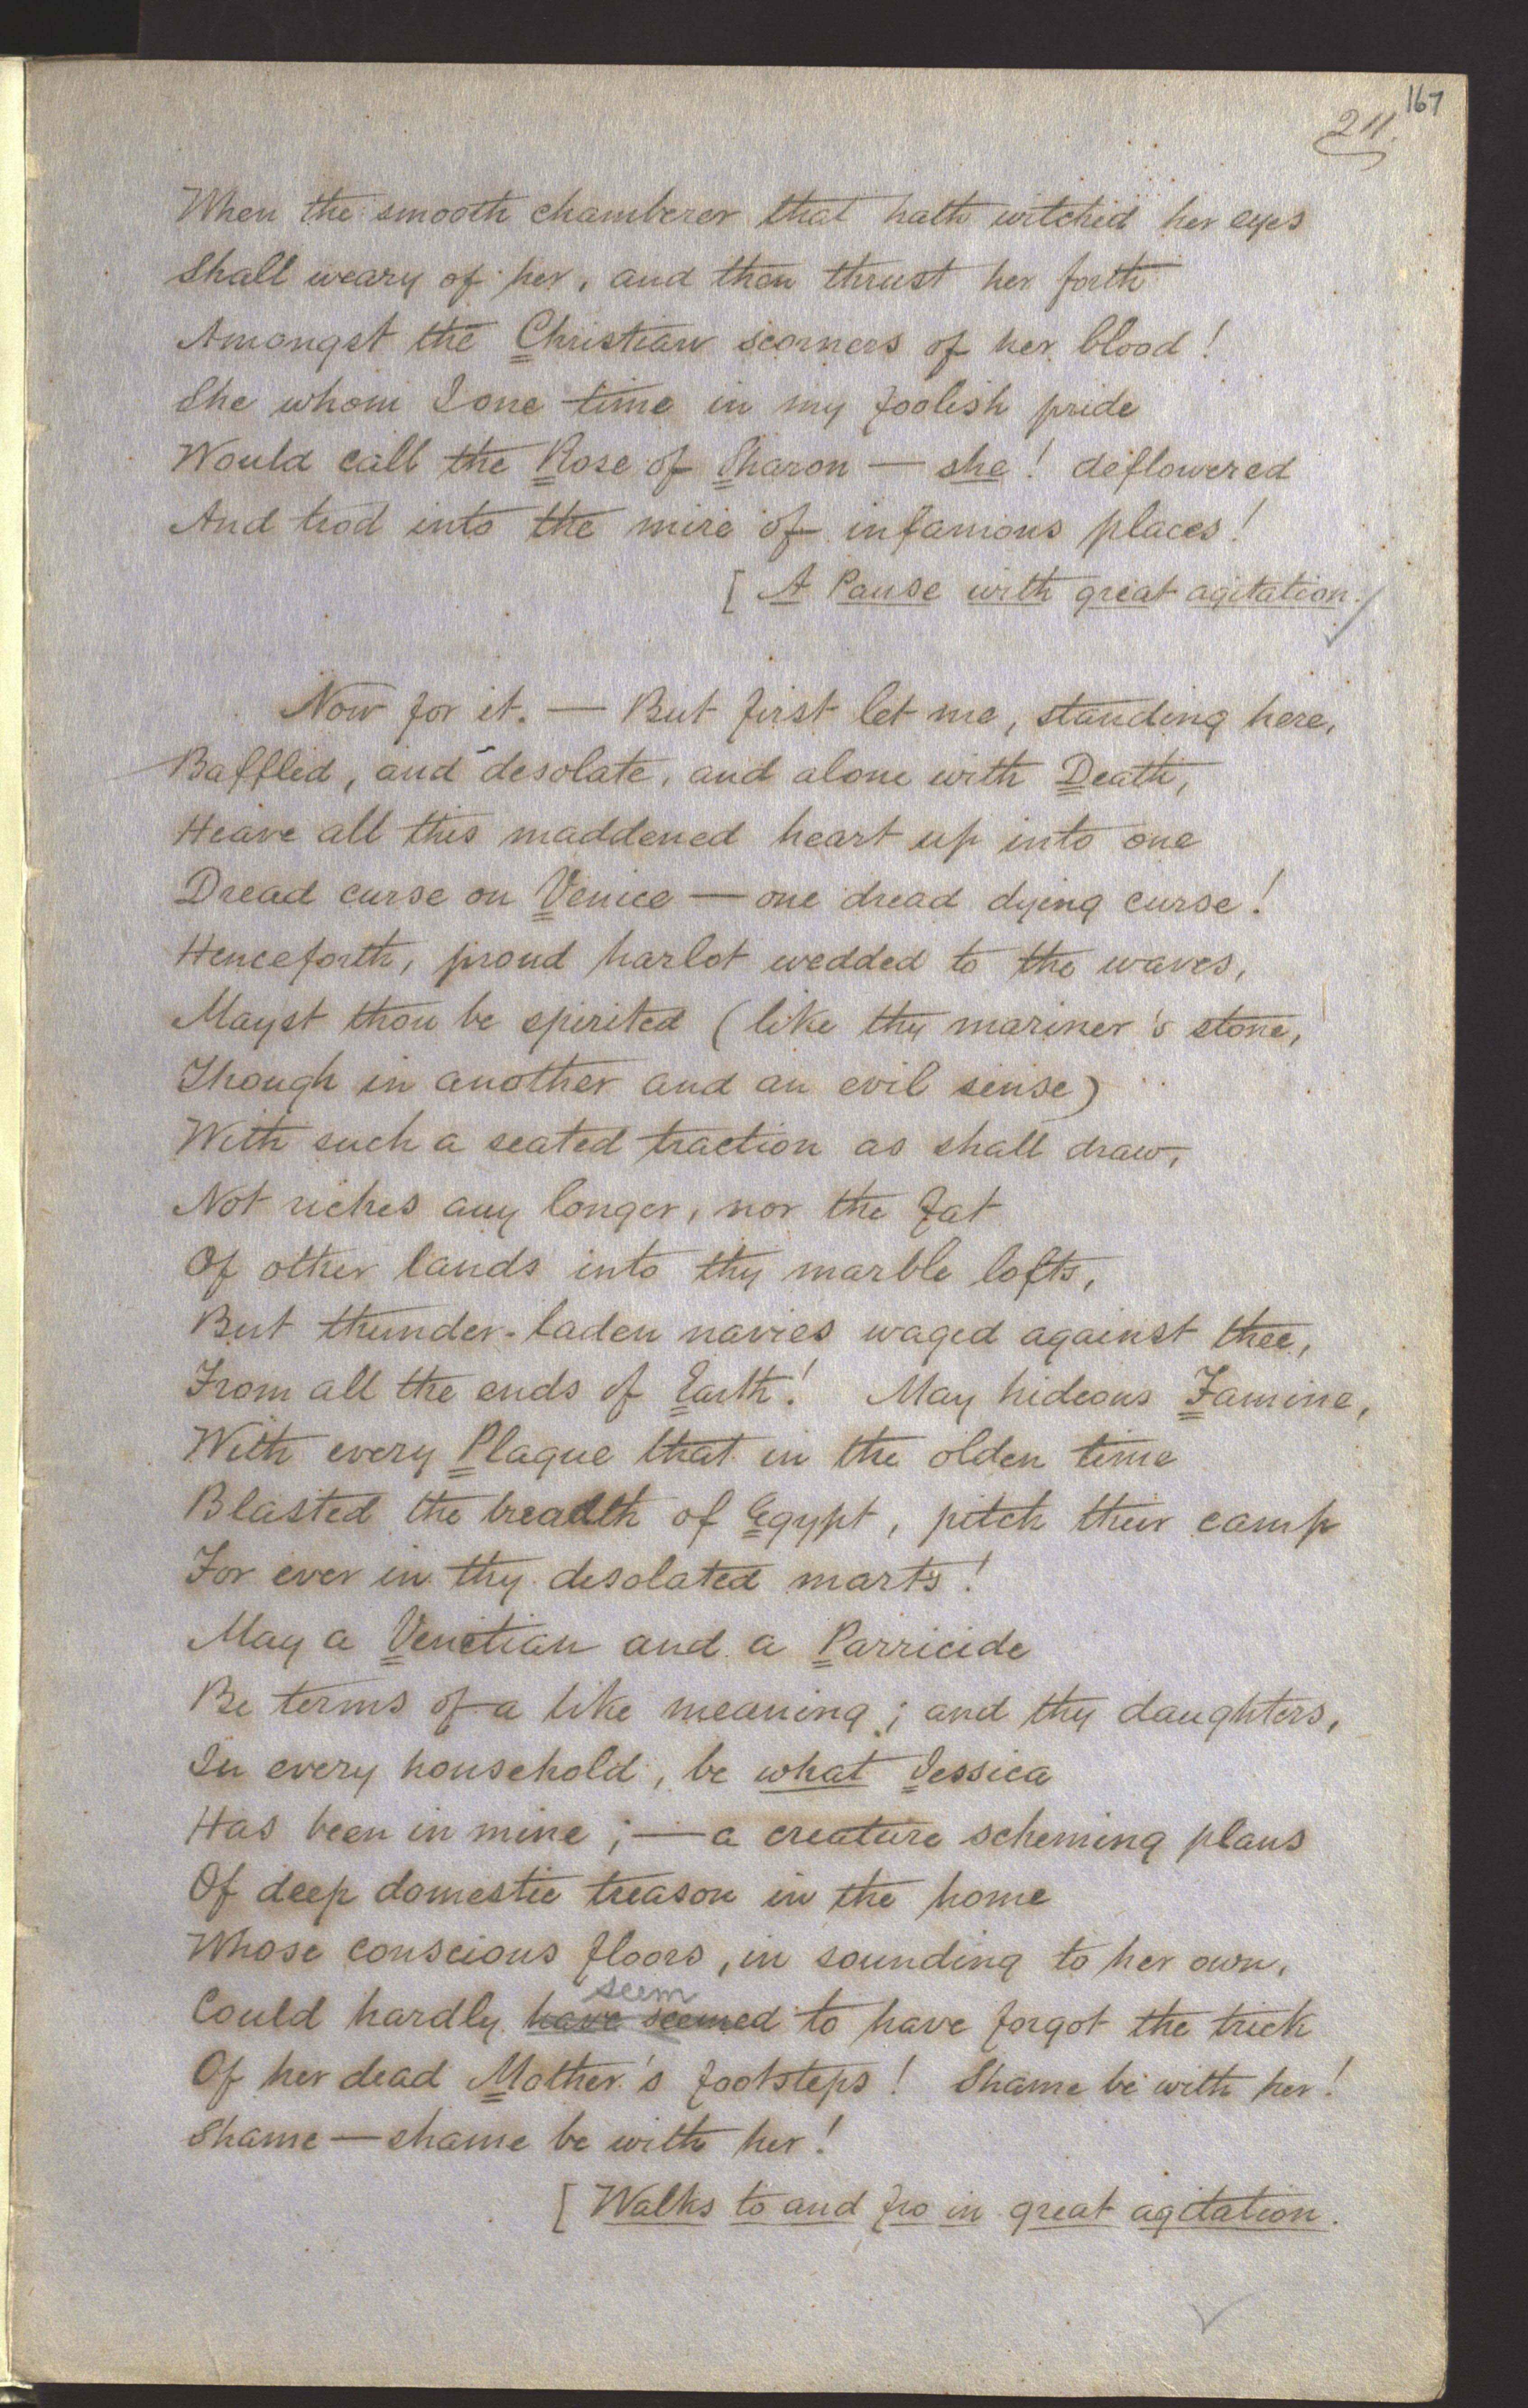 167
211.
When the smooth chamberer that hath witched her eyes
Shall weary of her, and then thrust her forth
Amongst the Christian scorners of her blood!
She whom I one time in my foolish pride
Would call the Rose of Sharon — she! deflowered
And trod into the mire of infamous places!
[ A Pause with great agitation.
Now for it. — But first let me, standing here,
Baffled, and desolate, and alone with Death,
Heave all this maddened heart up into one
Dread curse on Venice — one dread dying curse!
Henceforth, proud harlot wedded to the waves,
Mayst thou be spirited (like thy mariner's stone,
Though in another and an evil sense)
With such a seated traction as shall draw,
Not riches any longer, nor the fat
Of other lands into thy marble lofts,
But thunder-laden navies waged against thee,
From all the ends of Earth! May hideous Famine,
With every Plague that in the olden time
Blasted the breadth of Egypt, pitch their camp
For ever in thy desolated marts!
May a Venetian and a Parricide
Be terms of a like meaning; and thy daughters,
In every household, be what Jessica
Has been in mine; — a creature scheming plans
Of deep domestic treason in the home
Whose conscious floors, in sounding to her own,
seem
Could hardly have seemed to have forgot the trick
Of her dead Mother's footsteps! Shame be with her!
Shame — shame be with her!
[ Walks to and fro in great agitation.